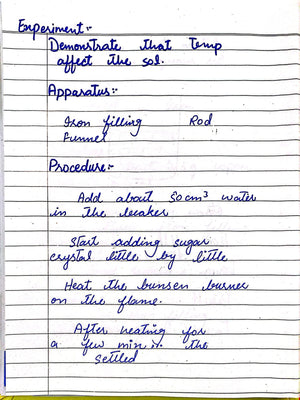 Experiment:-
Demonstrate that Temp
affect the sol.
Apparatus:-
Iron filling Rod
Funnel
Procedure:-
Add about 50 cm³ water
in the beaker
Start adding sugar
crystal little by little
Heat the bunsen burner
on the flame.
After heating for
a few min the
settled